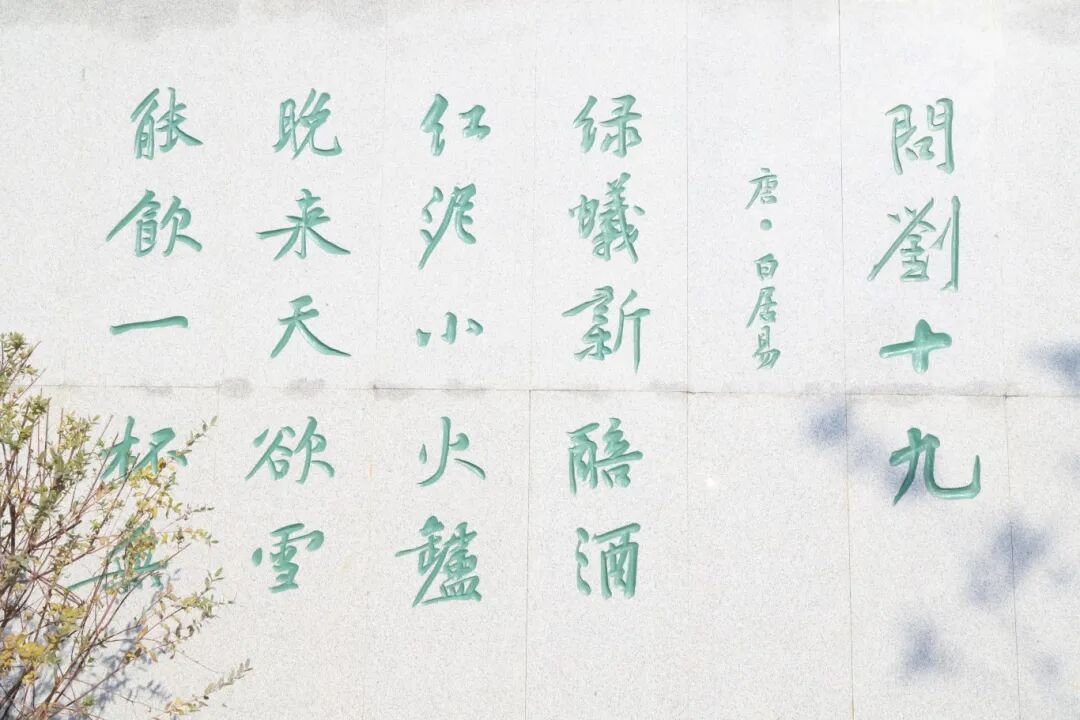 問劉十九
唐·白居易
绿蟻新醅酒
红泥小火鑪
晚来天欲雪
能飲一杯無